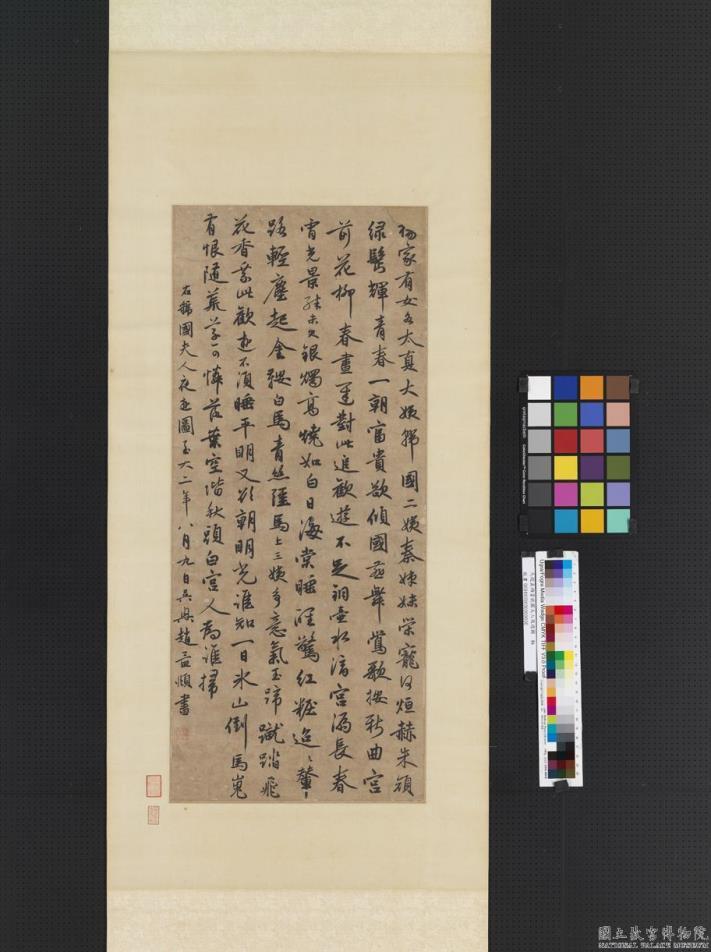 楊家有女名太真大姨虢國二姨秦姊妹榮寵何烜赫朱顏
綠鬢輝青春一朝富貴欲傾國燕舞鶯歌按新曲宮
前花柳春晝遲對此追歡遊不足銅壺水滴宮漏長春
宵光景殊未久銀燭高燒如白日海棠睡溼驚紅粧迢迢輦
路輕塵起金鞍白馬青絲韁馬上三姨多意氣玉蹄蹴踏飛
花香乘此歡遊不須睡平明又欲朝明光誰知一日冰山倒馬嵬
有恨隨荒草可憐落葉空階秋頭白宮人為誰掃
右虢國夫人夜遊圖至大二年八月九日吳興趙孟頫書
國立故宮博物院
NATIONAL PALACE MUSEUM